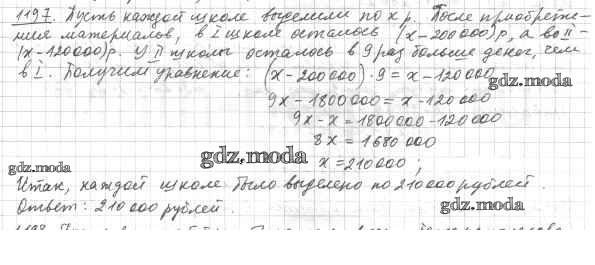 1197. Пусть каждой школе выделили по x р. После приобрете-
ния материалов, в I школе осталось (x-200000)р, а во II-
(x-120000)р. У II школы осталось в 9 раз больше денег, чем
в I. Получим уравнение: (x-200000)·9=x-120000
gdz.moda
9x-1800000=x-120000
9x-x=1800000-120000
8x=1680000
gdz.moda
gdz.moda
x=210000;
Итак, каждой школе было выделено по 210000 рублей.
Ответ: 210000 рублей.
gdz.moda